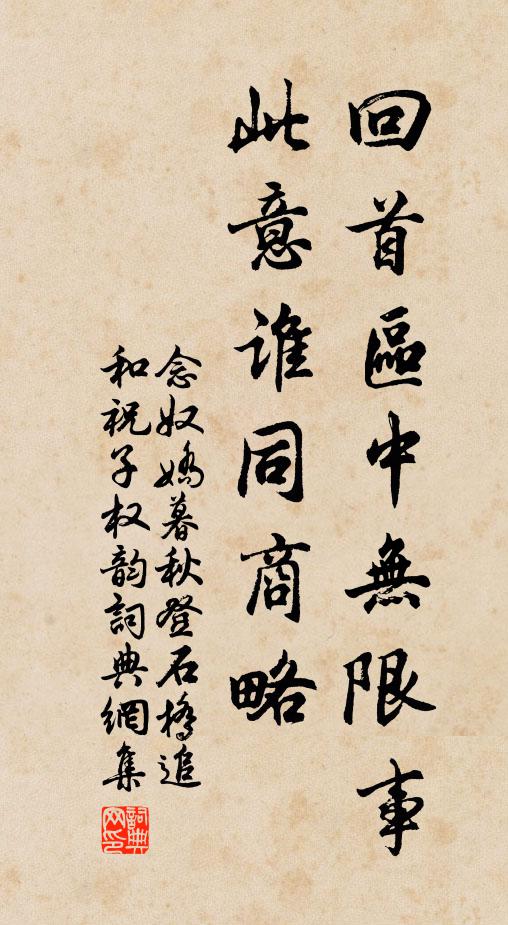 回首區中無限事
此意誰同商略
念奴嬌暮秋登石橋追
和祝子权韵詞典網集
詞典网印